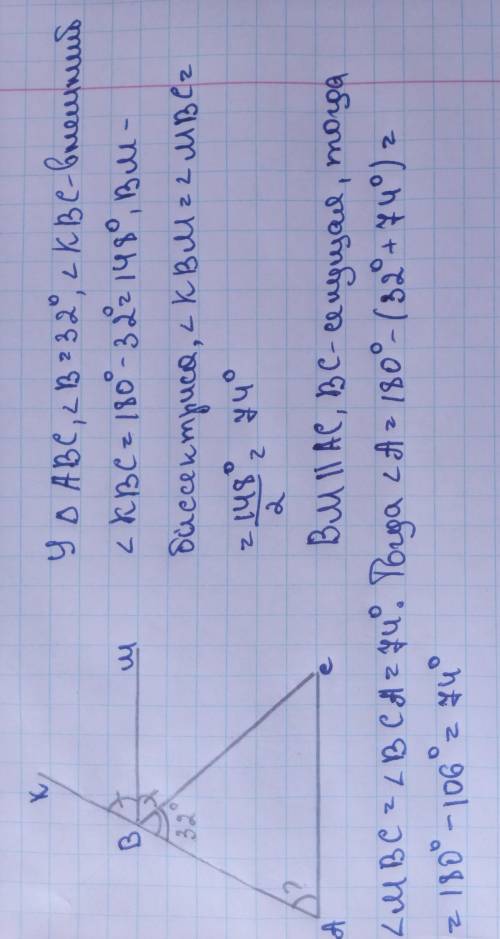 У △ ABC, ∠B=32°, ∠KBC-внешний
∠KBC=180°-32°=148°, BM-
биссектриса, ∠KBM=∠MBC=
=148°/2=74°
BM||AC, BC-секущая, тогда
∠MBC=∠BCA=74°. Тогда ∠A=180°-(32°+74°)=
=180°-106°=74°
K
B
M
32°
?
A
C